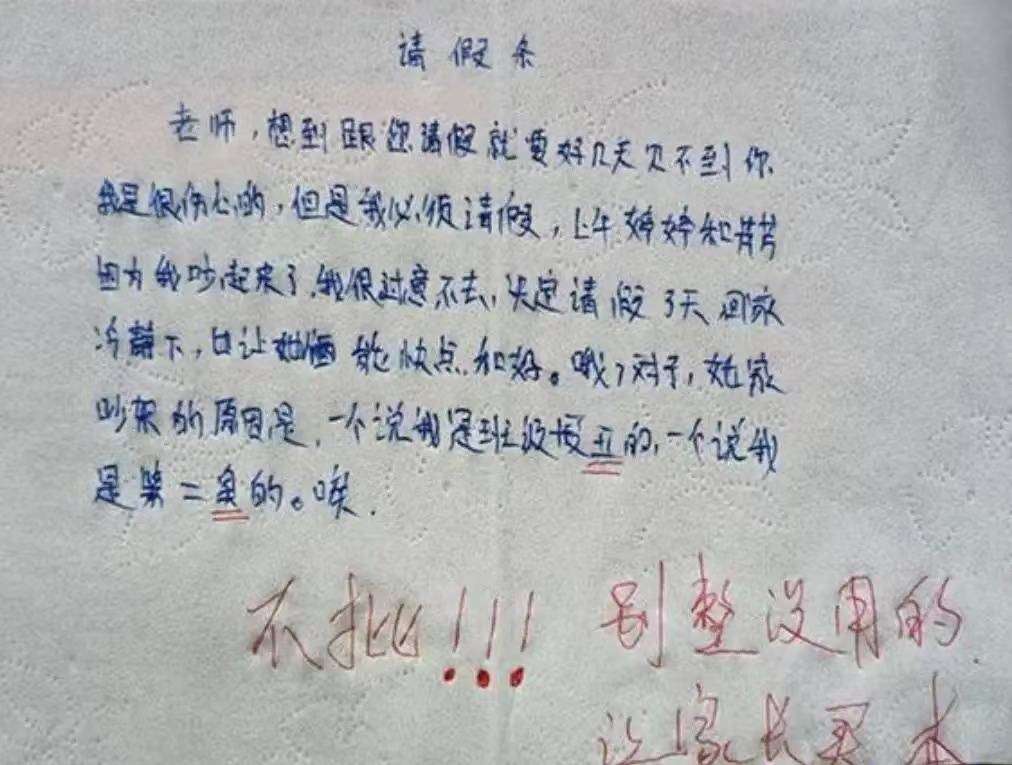 请假条
老师,想到跟您请假就要好几天见不到你
我是很伤心的,但是我必须请假,上午婷婷和芳芳
因为我吵起来了,我很过意不去,决定请假3天回家
冷静下,也让她俩能快点和好。哦,对了,她家
吵架的原因是,一个说我是班级最丑的,一个说我
是第二臭的。唉.
不批!!! 别整没用的
让家长买本